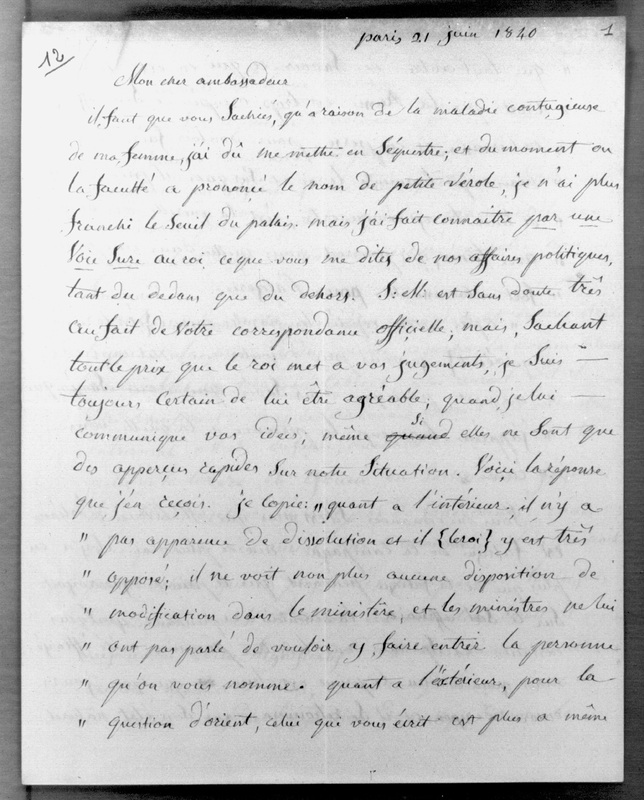 12
paris, 21 juin 1840
1
Mon cher ambassadeur
il faut que vous Sachiez, qu'a raison de la maladie contagieuse
de ma femme, j'ai dû me mettre en Séquestre, et du moment ou
la faculté a prononcé le nom de petite vérole, je n'ai plus
franchi le Seuil du palais. mais j'ai fait connaître par une
Voie Sure au roi ce que vous me dites de nos affaires politiques,
tant du dedans que du dehors. S: M: est Sans doute très
au fait de Votre correspondance officielle; mais, Sachant
tout le prix que le roi met a vos jugements, je Suis —
toujours Certain de lui être agréable, quand je lui —
communique vos idées, même quand Si elles ne Sont que
des apperçus rapides Sur notre Situation. Voici la réponse
que j'en reçois. je copie: " quant a l'intérieur, il n'y a
" pas apparence de dissolution et il {le roi} y est très
" opposé; il ne voit non plus aucune disposition de
" modification dans le ministère, et les ministres ne lui
" ont pas parlé de vouloir y faire entrer la personne
" qu'on vous nomme. quant a l'extérieur, pour la
" question d'orient, celui que vous écrit est plus a même